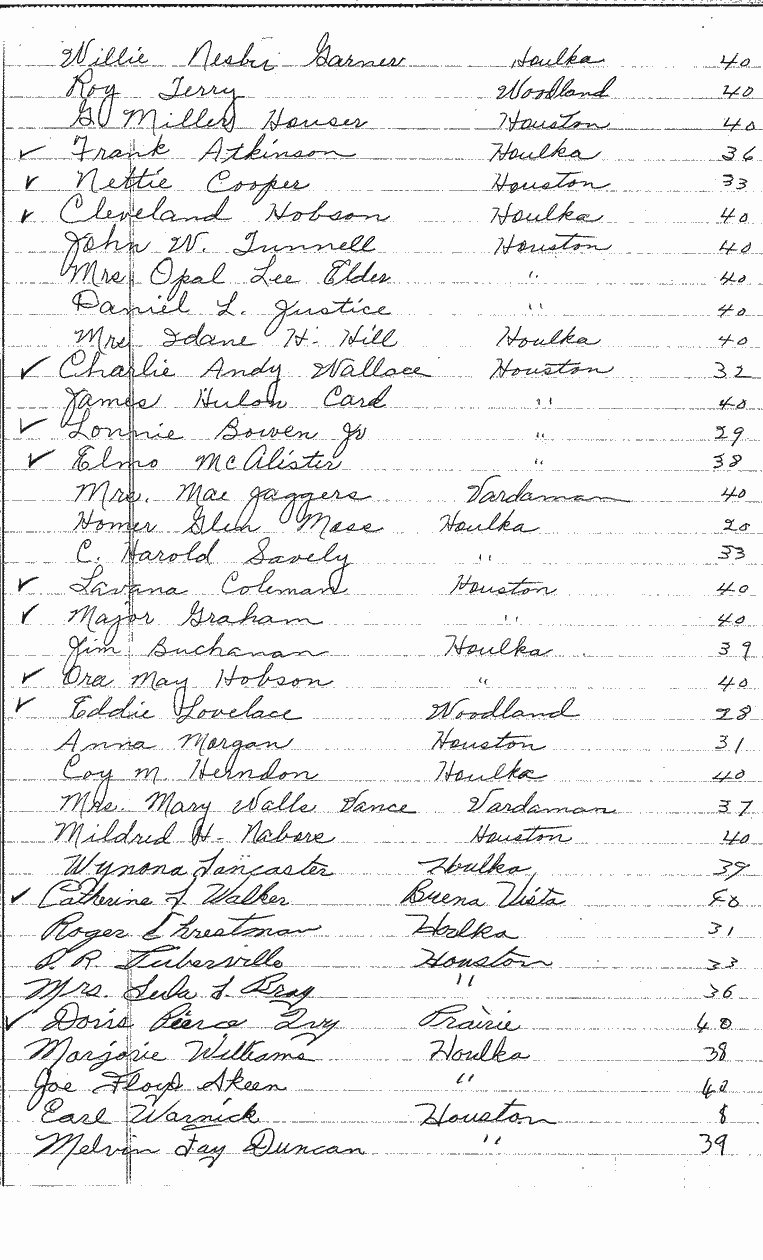 Willie Nesbit Garner Houlka 40
Roy Terry Woodland 40
G. Miller Houser Houston 40
✓ Frank Atkinson Houlka 36
✓ Nettie Cooper Houston 33
✓ Cleveland Hobson Houlka 40
John W. Tunnell Houston 40
Mrs Opal Lee Elder " 40
Daniel L. Justice " 40
Mrs Idane H. Hill Houlka 40
✓ Charlie Andy Wallace Houston 32
James Hulon Card " 40
✓ Lonnie Bowen Jr " 29
✓ Elmo McAlister " 38
Mrs. Mae Jaggers Vardaman 40
Homer Glen Moss Houlka 20
C. Harold Savely " 33
✓ Lavana Coleman Houston 40
✓ Major Graham " 40
Jim Buchanan Houlka 39
✓ Ora May Hobson " 40
✓ Eddie Lovelace Woodland 28
Anna Morgan Houston 31
Coy M. Herndon Houlka 40
Mrs. Mary Walls Vance Vardaman 37
Mildred H. Nabors Houston 40
Wynona Lancaster Houlka 39
✓ Catherine F. Walker Buena Vista 40
Roger Chrestman Houlka 31
R Tuberville Houston 33
Mrs. Lula F. Bray " 36
✓ Doris Pierce Ivy Prairie 40
Marjorie Williams Houlka 38
Joe Floyd Skeen " 40
Earl Warnick Houston 8
Melvin Fay Duncan " 39